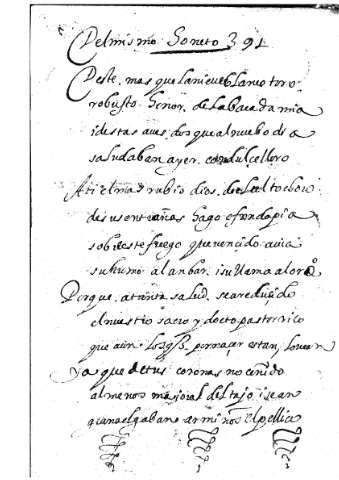 Del mismo Soneto 391
De este mas que la nieue blanco toro
robusto Señor de la bacada mia
i destas aues dos que al nuebo dia
saludaban ayer con dulce lloro
A ti el mas rubio dios del alto choro
de sus entrañas hago ofrenda pia
sobre este fuego que vencido auia
su humo al anbar i su llama al oro
Porque a tanta salud sea reducido
el nuestro sacro y docto pastor rico
que aun los q̃ por nacer estan, lo uean
ya que de tus coronas no ceñido
al menos maioral del tajo i sean
grana el gaban armiños el pellico